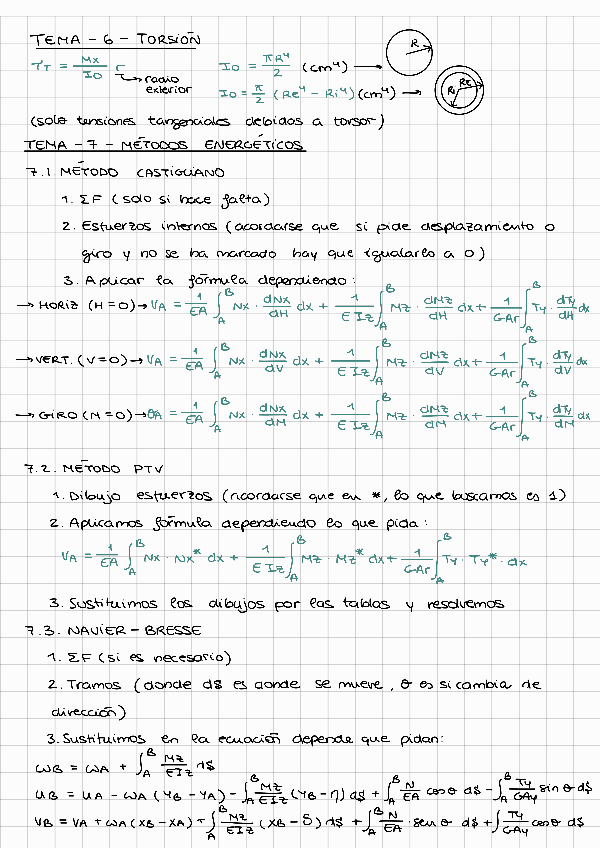 TEMA - 6 - TORSIÓN
τT = Mx/Io r → radio exterior
Io = πR⁴/2 (cm⁴) → R
Io = π/2 (Re⁴ - Ri⁴) (cm⁴) → Ri Re
(solo tensiones tangenciales debidos a torsor)
TEMA - 7 - MÉTODOS ENERGÉTICOS
7.1 MÉTODO CASTIGLIANO
1. ΣF (solo si hace falta)
2. Esfuerzos internos (acordarse que si pide desplazamiento o
giro y no se ha marcado hay que igualarlo a 0)
3. Aplicar la fórmula dependiendo:
→ HORIZ (H=0) → VA = 1/EA ∫_A^B Nx · dNx/dH dx + 1/EIz ∫_A^B Mz · dMz/dH dx + 1/GAr ∫_A^B Ty · dTy/dH dx
→ VERT. (V=0) → VA = 1/EA ∫_A^B Nx · dNx/dV dx + 1/EIz ∫_A^B Mz · dMz/dV dx + 1/GAr ∫_A^B Ty · dTy/dV dx
→ GIRO (M=0) → θA = 1/EA ∫_A^B Nx · dNx/dM dx + 1/EIz ∫_A^B Mz · dMz/dM dx + 1/GAr ∫_A^B Ty · dTy/dM dx
7.2. MÉTODO PTV
1. Dibujo esfuerzos (ricordarse que en *, lo que buscamos es 1)
2. Aplicamos fórmula dependiendo lo que pida:
VA = 1/EA ∫_A^B Nx · Nx* dx + 1/EIz ∫_A^B Mz · Mz* dx + 1/GAr ∫_A^B Ty · Ty* · dx
3. Sustituimos los dibujos por las tablas y resolvemos
7.3. NAVIER - BRESSE
1. ΣF (si es necesario)
2. Tramos (donde ds es donde se mueve, θ es si cambia de
dirección)
3. Sustituimos en la ecuación depende que pidan:
ωB = ωA + ∫_A^B Mz/EIz ds
uB = uA - ωA (YB - YA) - ∫_A^B Mz/EIz (YB - η) ds + ∫_A^B N/EA cos θ ds - ∫_A^B Ty/GAy sin θ ds
VB = VA + ωA (XB - XA) + ∫_A^B Mz/EIz (XB - δ) ds + ∫_A^B N/EA · sen θ ds + ∫ Ty/GAy cos θ ds